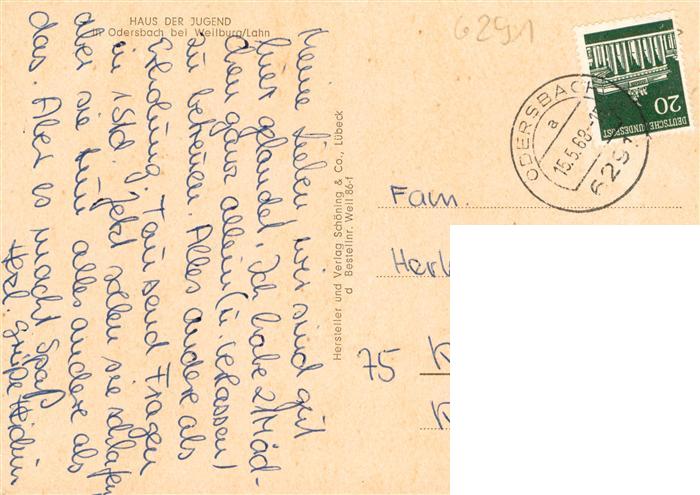 HAUS DER JUGEND
in Odersbach bei Weilburg/Lahn
6291
Meine Lieben, wir sind gut
hier gelandet. Ich habe 2 Mäd-
chen ganz allein (u. verlassen)
zu betreuen. Alles andere als
Erholung. Tausend Fragen
in 1 Std. Jetzt sollen sie schlafen
aber sie tun alles andere als
das. Aber es macht Spaß
Herzl. Grüße
Hersteller und Verlag Schöning & Co., Lübeck
d Bestellnr. Weil 86-f
DEUTSCHE BUNDESPOST
20
ODERSBACH
a
15.5.68
6291
Fam.
75